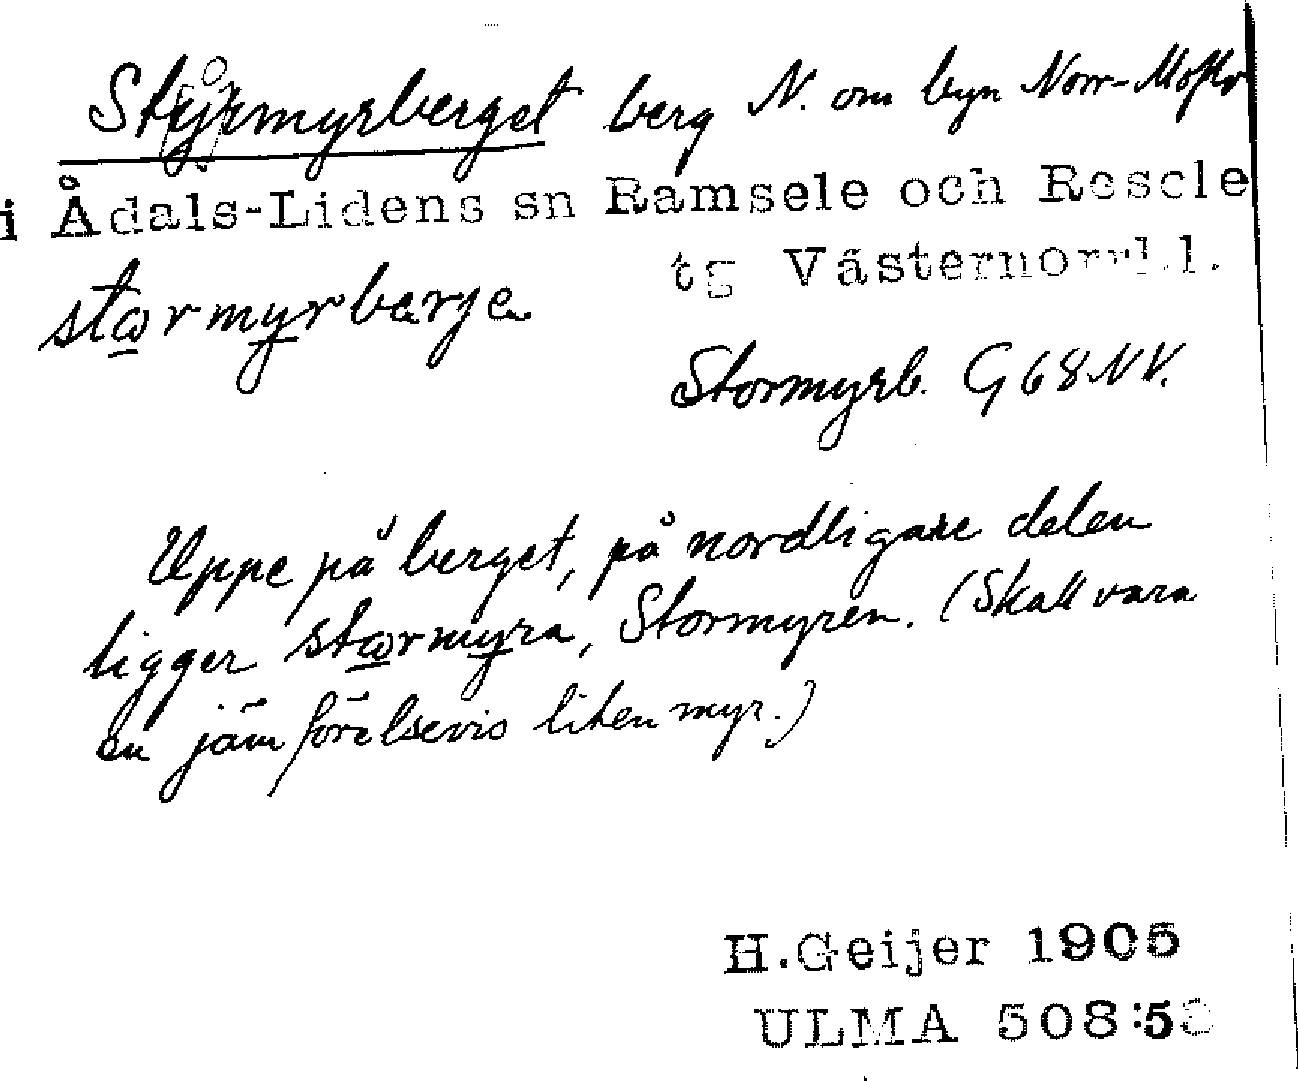 Styrmyrberget berg N. om byn Norr-Moflo
i Ådals-Lidens sn Ramsele och Resele
tg Västernorrl.l.
stωrmyrbærjea
Stormyrb. G 68 NV.
Uppe på berget, på nordligare delen
ligger stωrmyra, Stormyren. (Skall vara
en jämförelsevis liten myr.)
H.Geijer 1905
ULMA 508:5